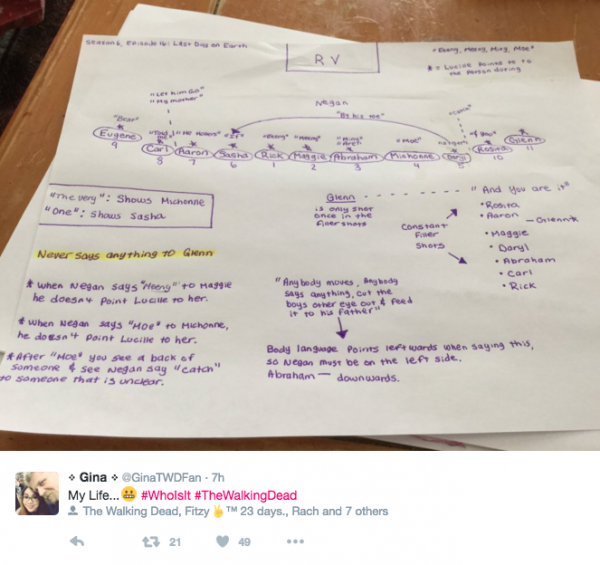 Season 6, Episode 16: Last Day on Earth
RV
"Eeeny, Meeny, Miny, Moe"
* = Lucille Points to
the person during
"Let him go"
"My mother"
Negan
"By his toe"
"Dear"
"Told"
"He Hollers"
"If"
"Eeeny"
"Meeny"
"Miny"
"Moe"
"Tiger"
"You"
Eugene
Carl
Aaron
Sasha
Rick
Maggie
Abraham
Michonne
Daryl
Rosita
Glenn
9
8
7
6
1
2
3
4
5
10
11
"The very": Shows Michonne
"One": Shows Sasha
Glenn
is only shot
once in the
finer shots
Constant
Finer
Shots
"And you are it"
• Rosita
• Aaron
— Glenn*
• Maggie
• Daryl
• Abraham
• Carl
• Rick
Never says anything to Glenn
* When Negan says "Meeny" to Maggie
he doesn't Point Lucille to her.
* When Negan says "MOE" to Michonne,
he doesn't Point Lucille to her.
* After "Moe" you see a back of
someone & see Negan say "catch"
to someone that is unclear.
"Anybody moves, Anybody
says anything, cut the
boys other eye out & Feed
it to his father"
Body language Points leftwards when saying this,
so Negan must be on the left side.
Abraham — downwards.
Gina @GinaTWDFan · 7h
My Life...😬 #WhoIsIt #TheWalkingDead
The Walking Dead, Fitzy✌™ 23 days., Rach and 7 others
21
49